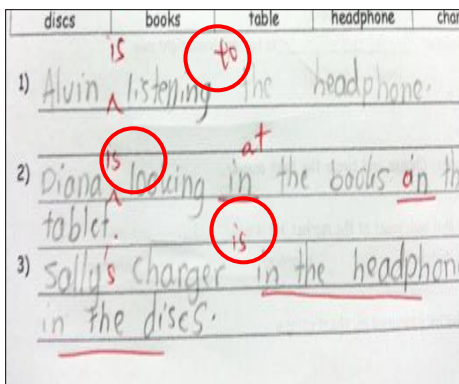 discs books table headphone char
is to
1) Alvin ʌ listening the headphone.
is at
2) Diana ʌ looking in the books on th
tablet.
is
3) Sally's charger in the headphon
in the discs.